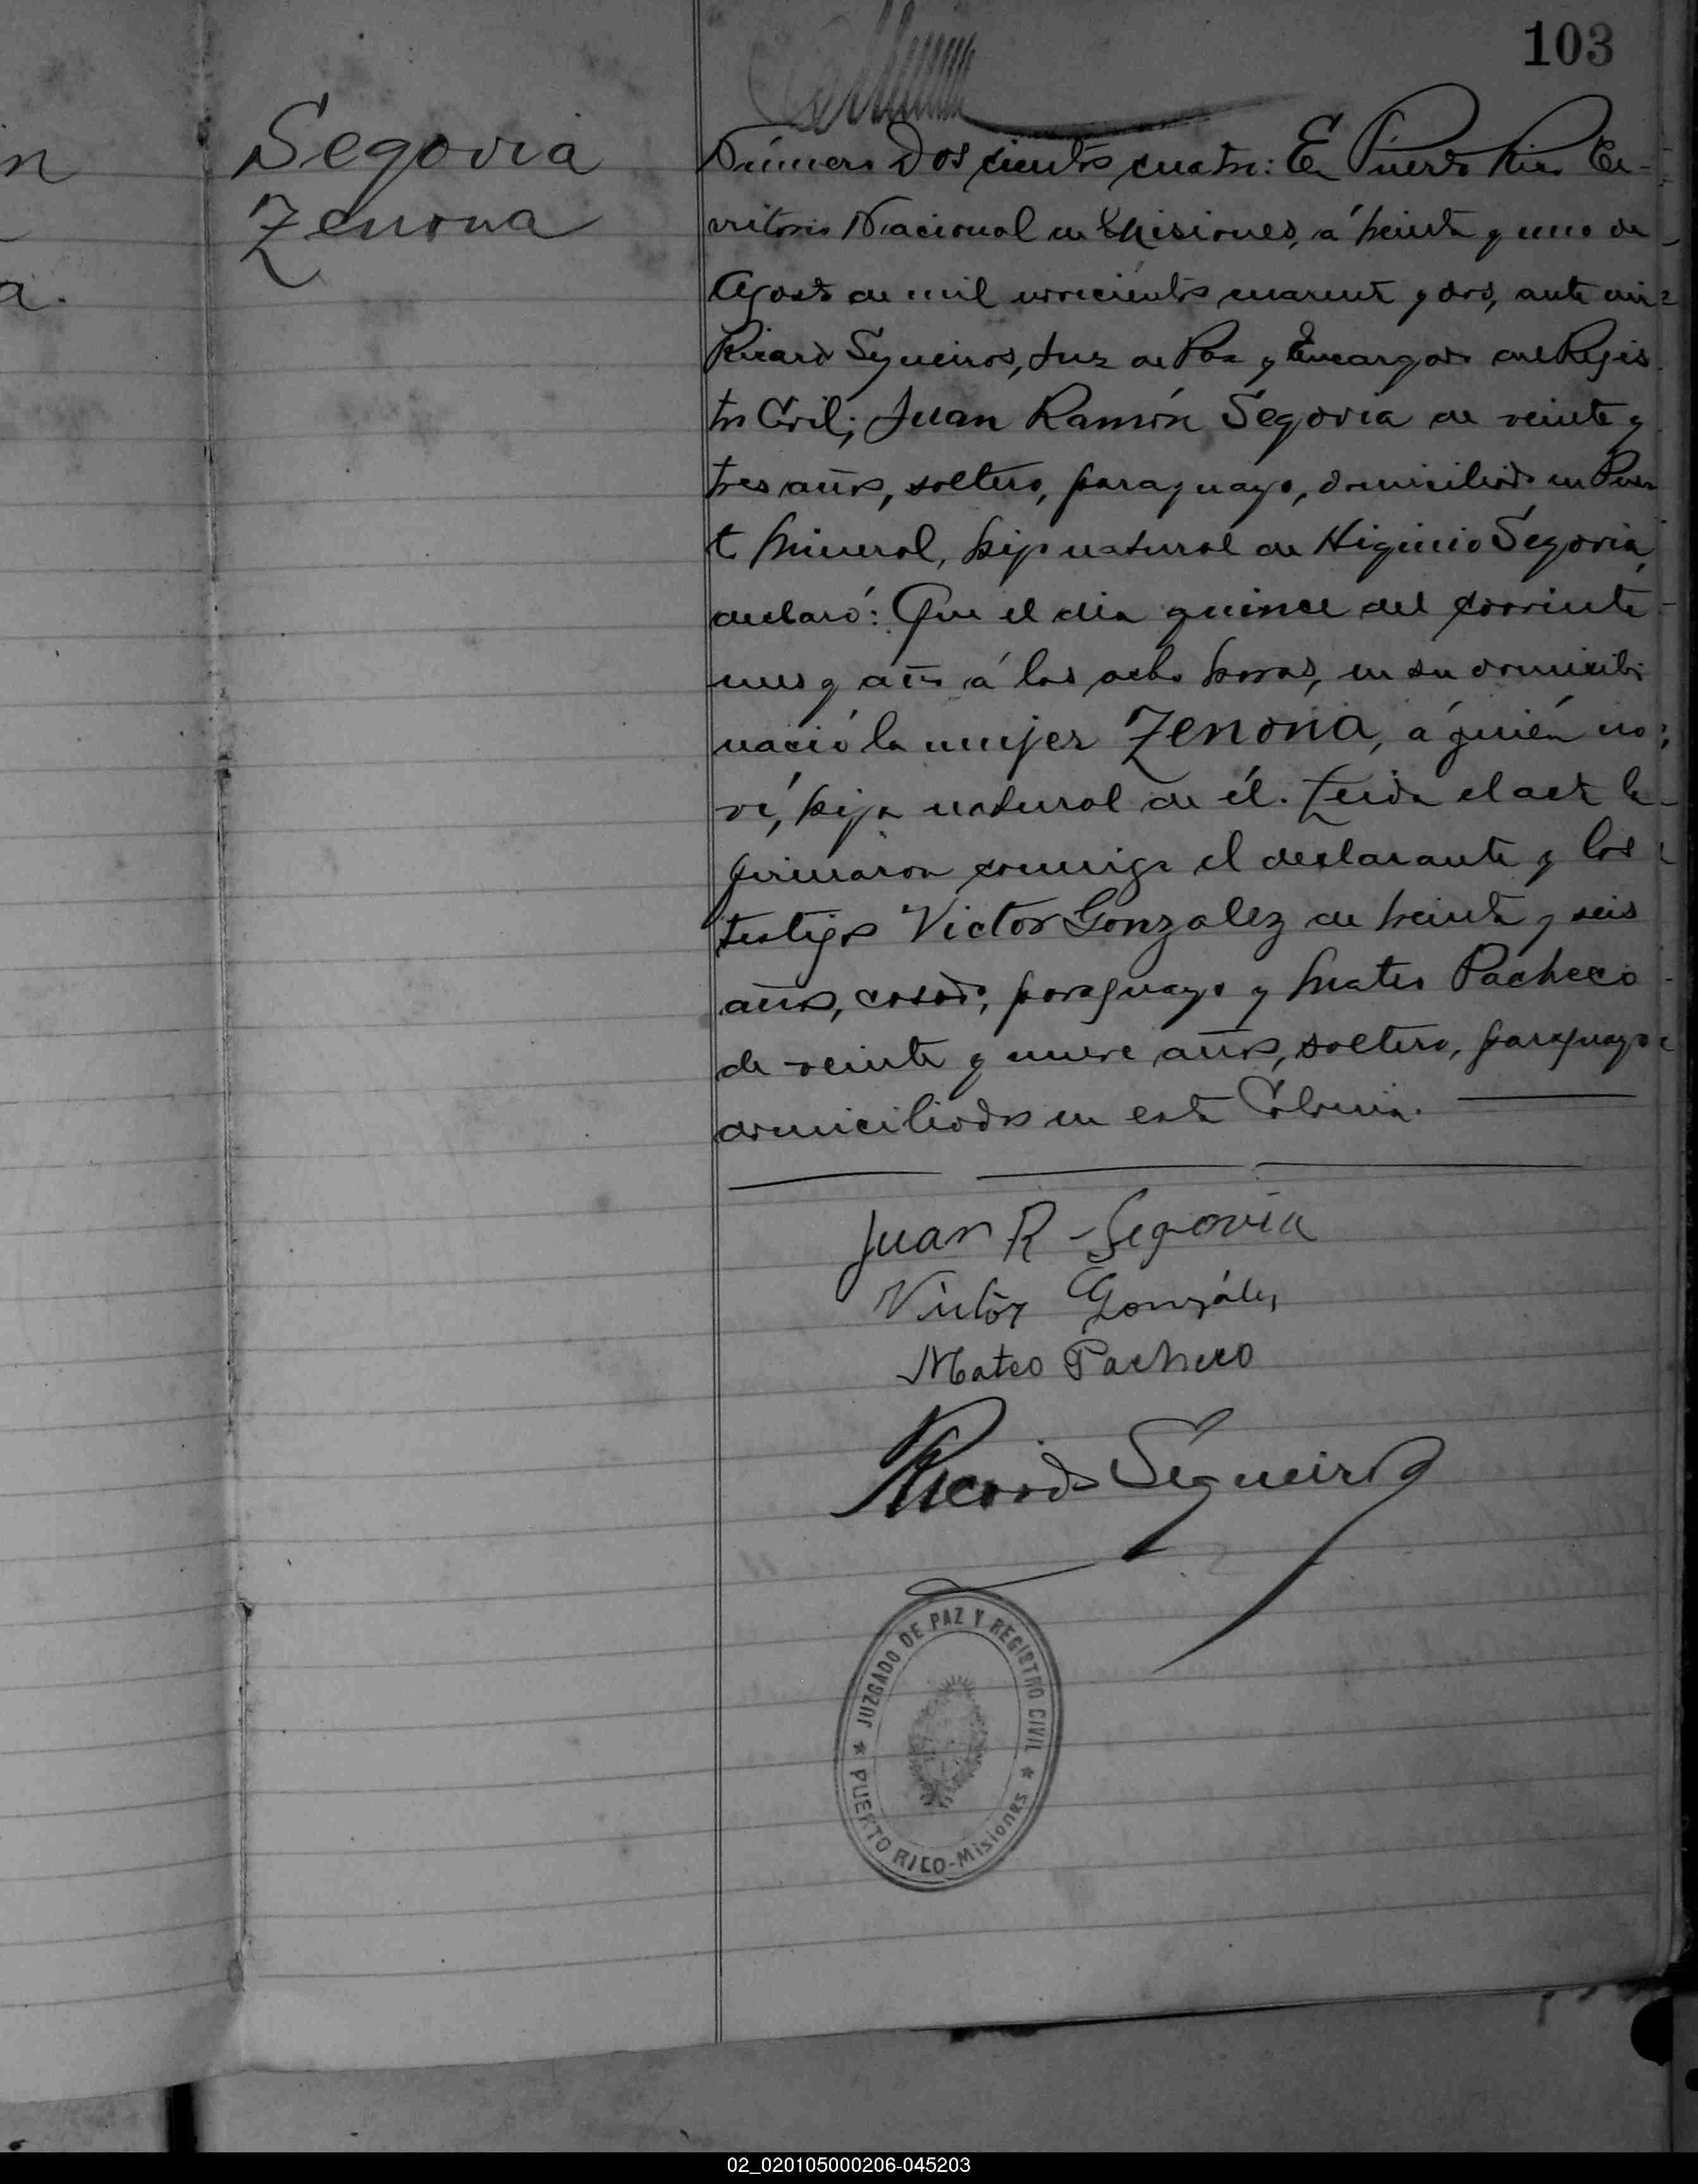 103
n
a.
Segovia
Zenona
Número Doscientos cuatro: En Puerto Rico Te-
rritorio Nacional de Misiones, á treinta y uno de
Agosto de mil novecientos cuarenta y dos, ante mi
Ricardo Sequeiros, Juez de Paz y Encargado del Regis
tro Civil; Juan Ramón Segovia de veinte y
tres años, soltero, paraguayo, domiciliado en Puer
to Mineral, hijo natural de Higinio Segovia,
declaró: Que el dia quince del corriente
mes y año á las ocho horas, en su domicilio
nació la mujer Zenona, á quién no
ví, hija natural de él. Leida el acta la
firmaron conmigo el declarante y los
testigos Victor Gonzalez de treinta y seis
años, casado, paraguayo y Mateo Pacheco
de veinte y nueve años, soltero, paraguayo
domiciliados en esta Colonia.
Juan R Segovia
Victor González
Mateo Pacheco
Ricardo Sequeiros
JUZGADO DE PAZ Y REGISTRO CIVIL
★ PUERTO RICO-Misiones ★
02_020105000206-045203